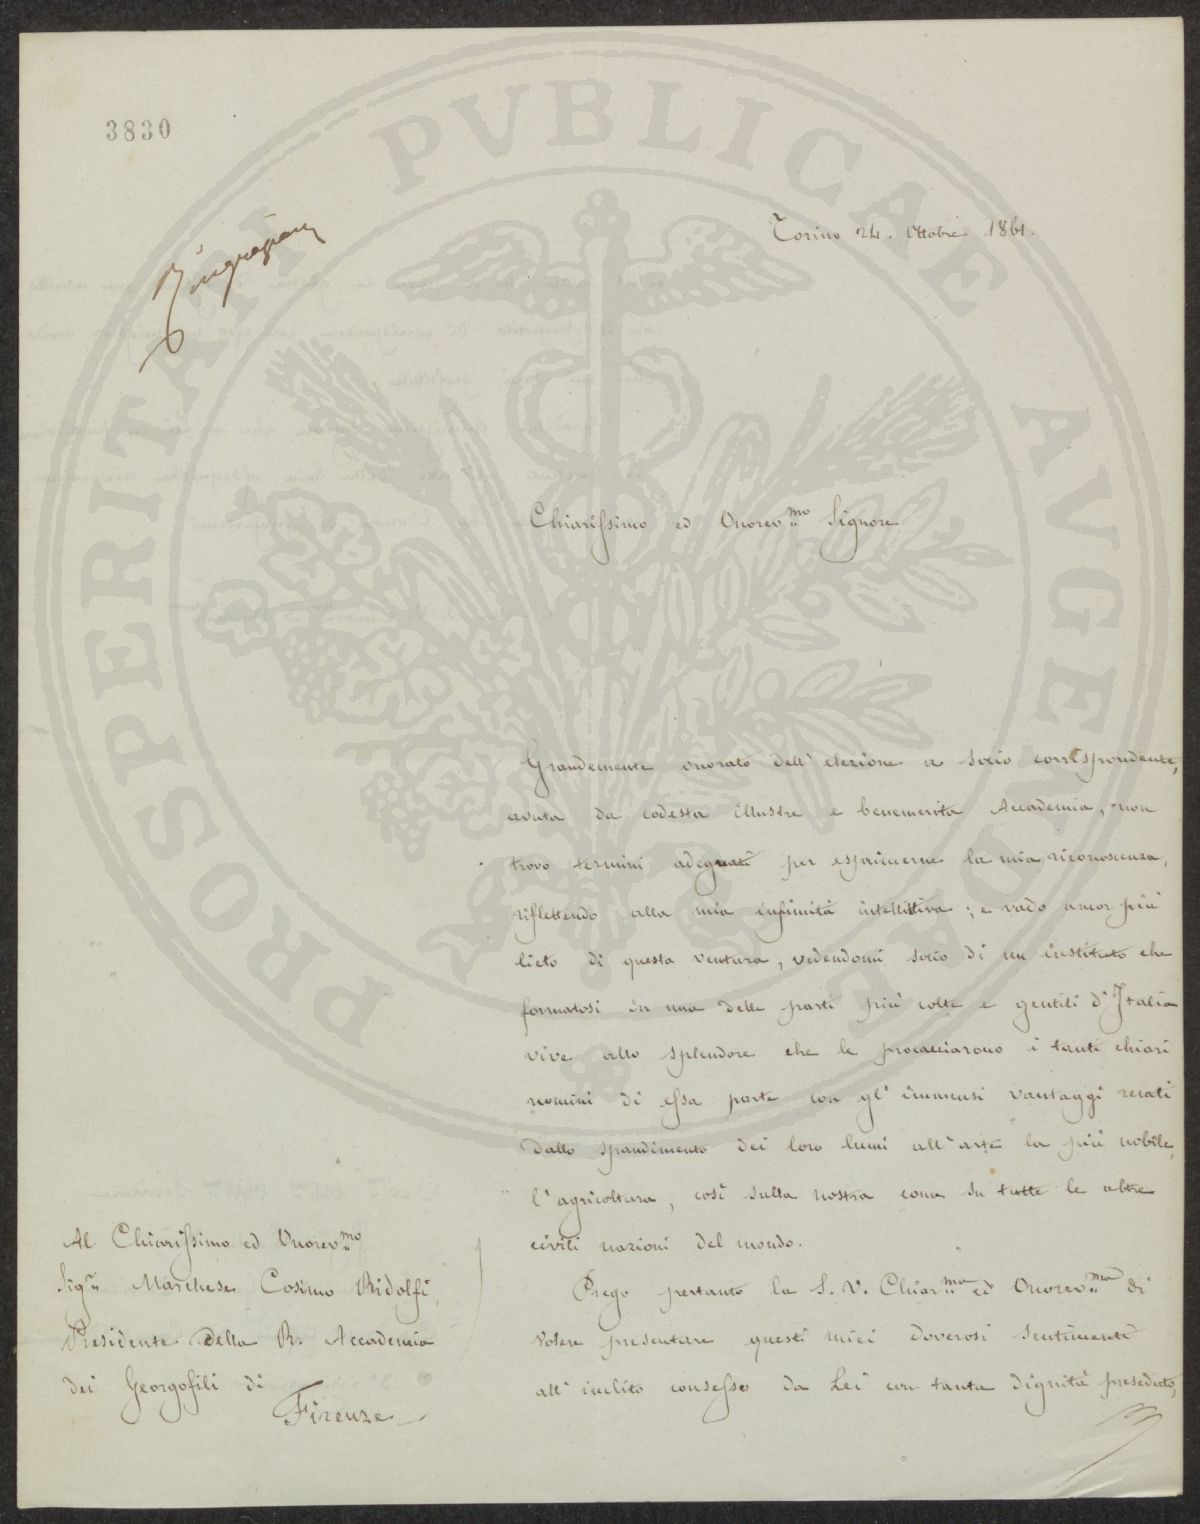 3830
Torino 24. Ottobre 1861.
Chiarissimo ed Onorev.mo Signore
Grandemente onorato dell'elezione a socio corrispondente,
avuta da codesta illustre e benemerita Accademia, non
trovo termini adeguati per esprimerne la mia riconoscenza,
riflettendo alla mia infimità intellittiva; e vado ancor più
lieto di questa ventura, vedendomi socio di un instituto che
formatosi in una delle parti più colte e gentili d'Italia
vive allo splendore che le procacciarono i tanti chiari
uomini di essa parte con gl'immensi vantaggi recati
dallo spandimento dei loro lumi all'arte la più nobile,
l'agricoltura, così sulla nostra come su tutte le altre
civili nazioni del mondo.
Prego pertanto la S. V. Chiar.ma ed Onorev.ma di
volere presentare questi miei doverosi sentimenti
all'inclito consesso da Lei con tanta dignità preseduto,
Al Chiarissimo ed Onorev.mo
Sigr. Marchese Cosimo Ridolfi,
Presidente della R. Accademia
dei Georgofili di
Firenze
PROSPERITATI PVBLICAE AVGENDAE